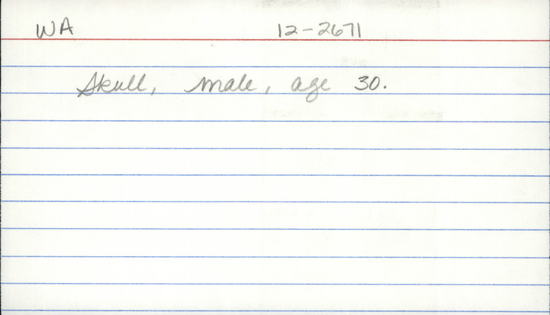 WA 12-2671
Skull, male, age 30.